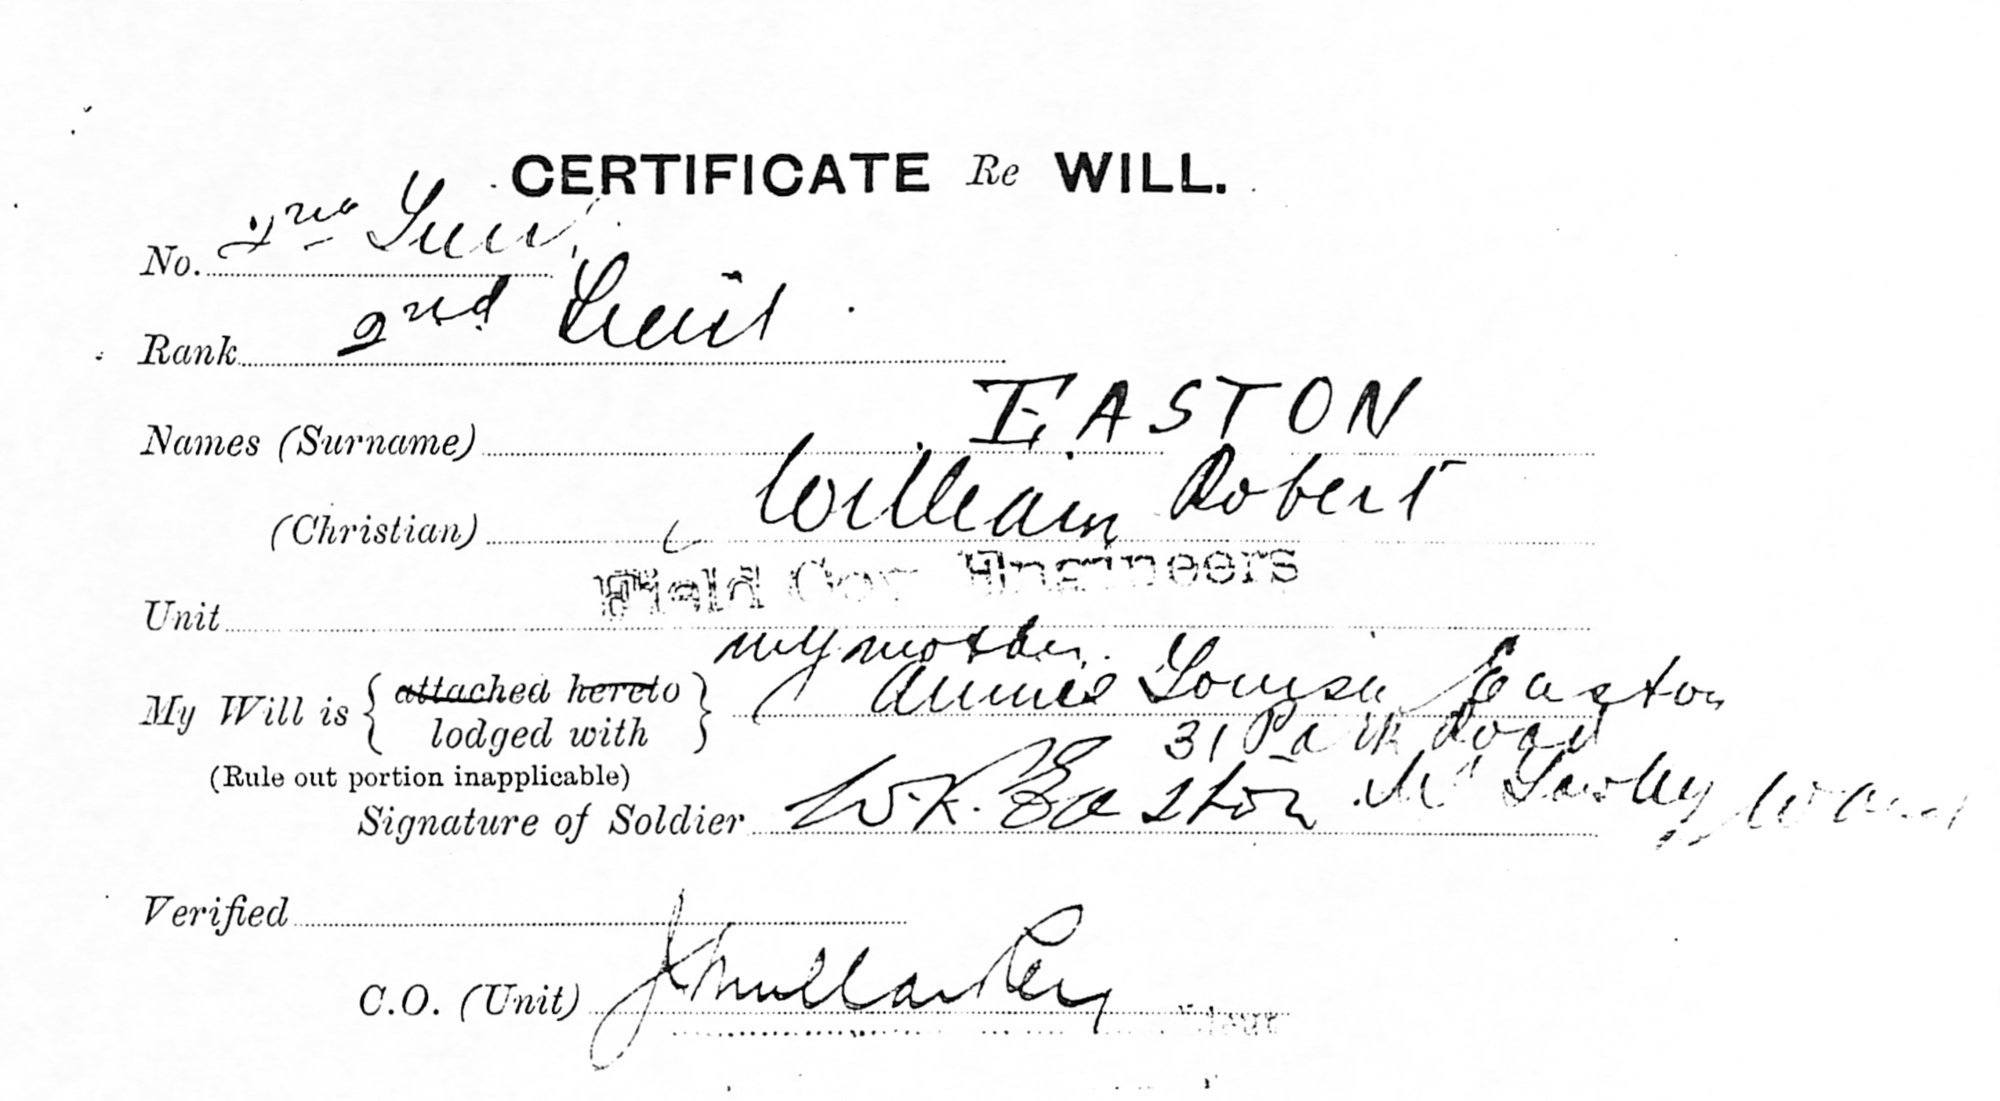 CERTIFICATE Re WILL.
No. 2nd Lieu
Rank 2nd Lieut
Names (Surname) EASTON
(Christian) William Robert
Unit Field Coy Engineers
my mother
My Will is { attached hereto lodged with } Annie Louisa Easton
31 Park Road
(Rule out portion inapplicable)
Mt Lawley W Aust
Signature of Soldier W.R. Easton
Verified
C.O. (Unit) J Mullarkey
Lieut